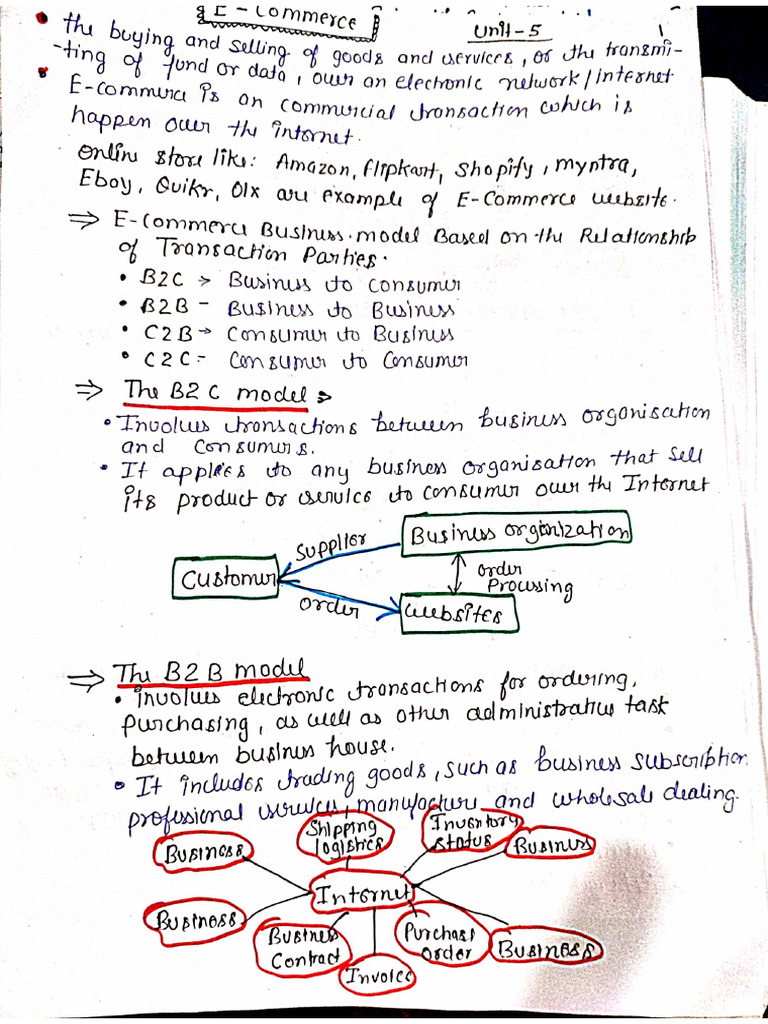 E-Commerce
Unit-5
1
the buying and selling of goods and services, or the transmi-
-ting of fund or data, over an electronic network/internet
E-commerce is an commercial transaction which is
happen over the internet.
Online store like: Amazon, flipkart, Shopify, myntra,
Eboy, Quikr, Olx are example of E-Commerce website.
⇒ E-commerce Business model Based on the Relationship
of Transaction Parties.
• B2C → Business to Consumer
• B2B - Business to Business
• C2B → Consumer to Business
• C2C - Consumer to Consumer
⇒ The B2C model :-
• Involves transactions between business organisation
and consumers.
• It applies to any business organisation that sell
its product or service to consumer over the Internet
Business organization
Supplier
Customer
order
Processing
Order
websites
⇒ The B2B model
• involves electronic transactions for ordering,
purchasing, as well as other administrative task
between business house.
• It includes trading goods, such as business subscription
professional services, manufacture and wholesale dealing.
Shipping
logistics
Inventory
status
Business
Business
Internet
Business
Business
Contract
Purchase
order
Business
Invoice